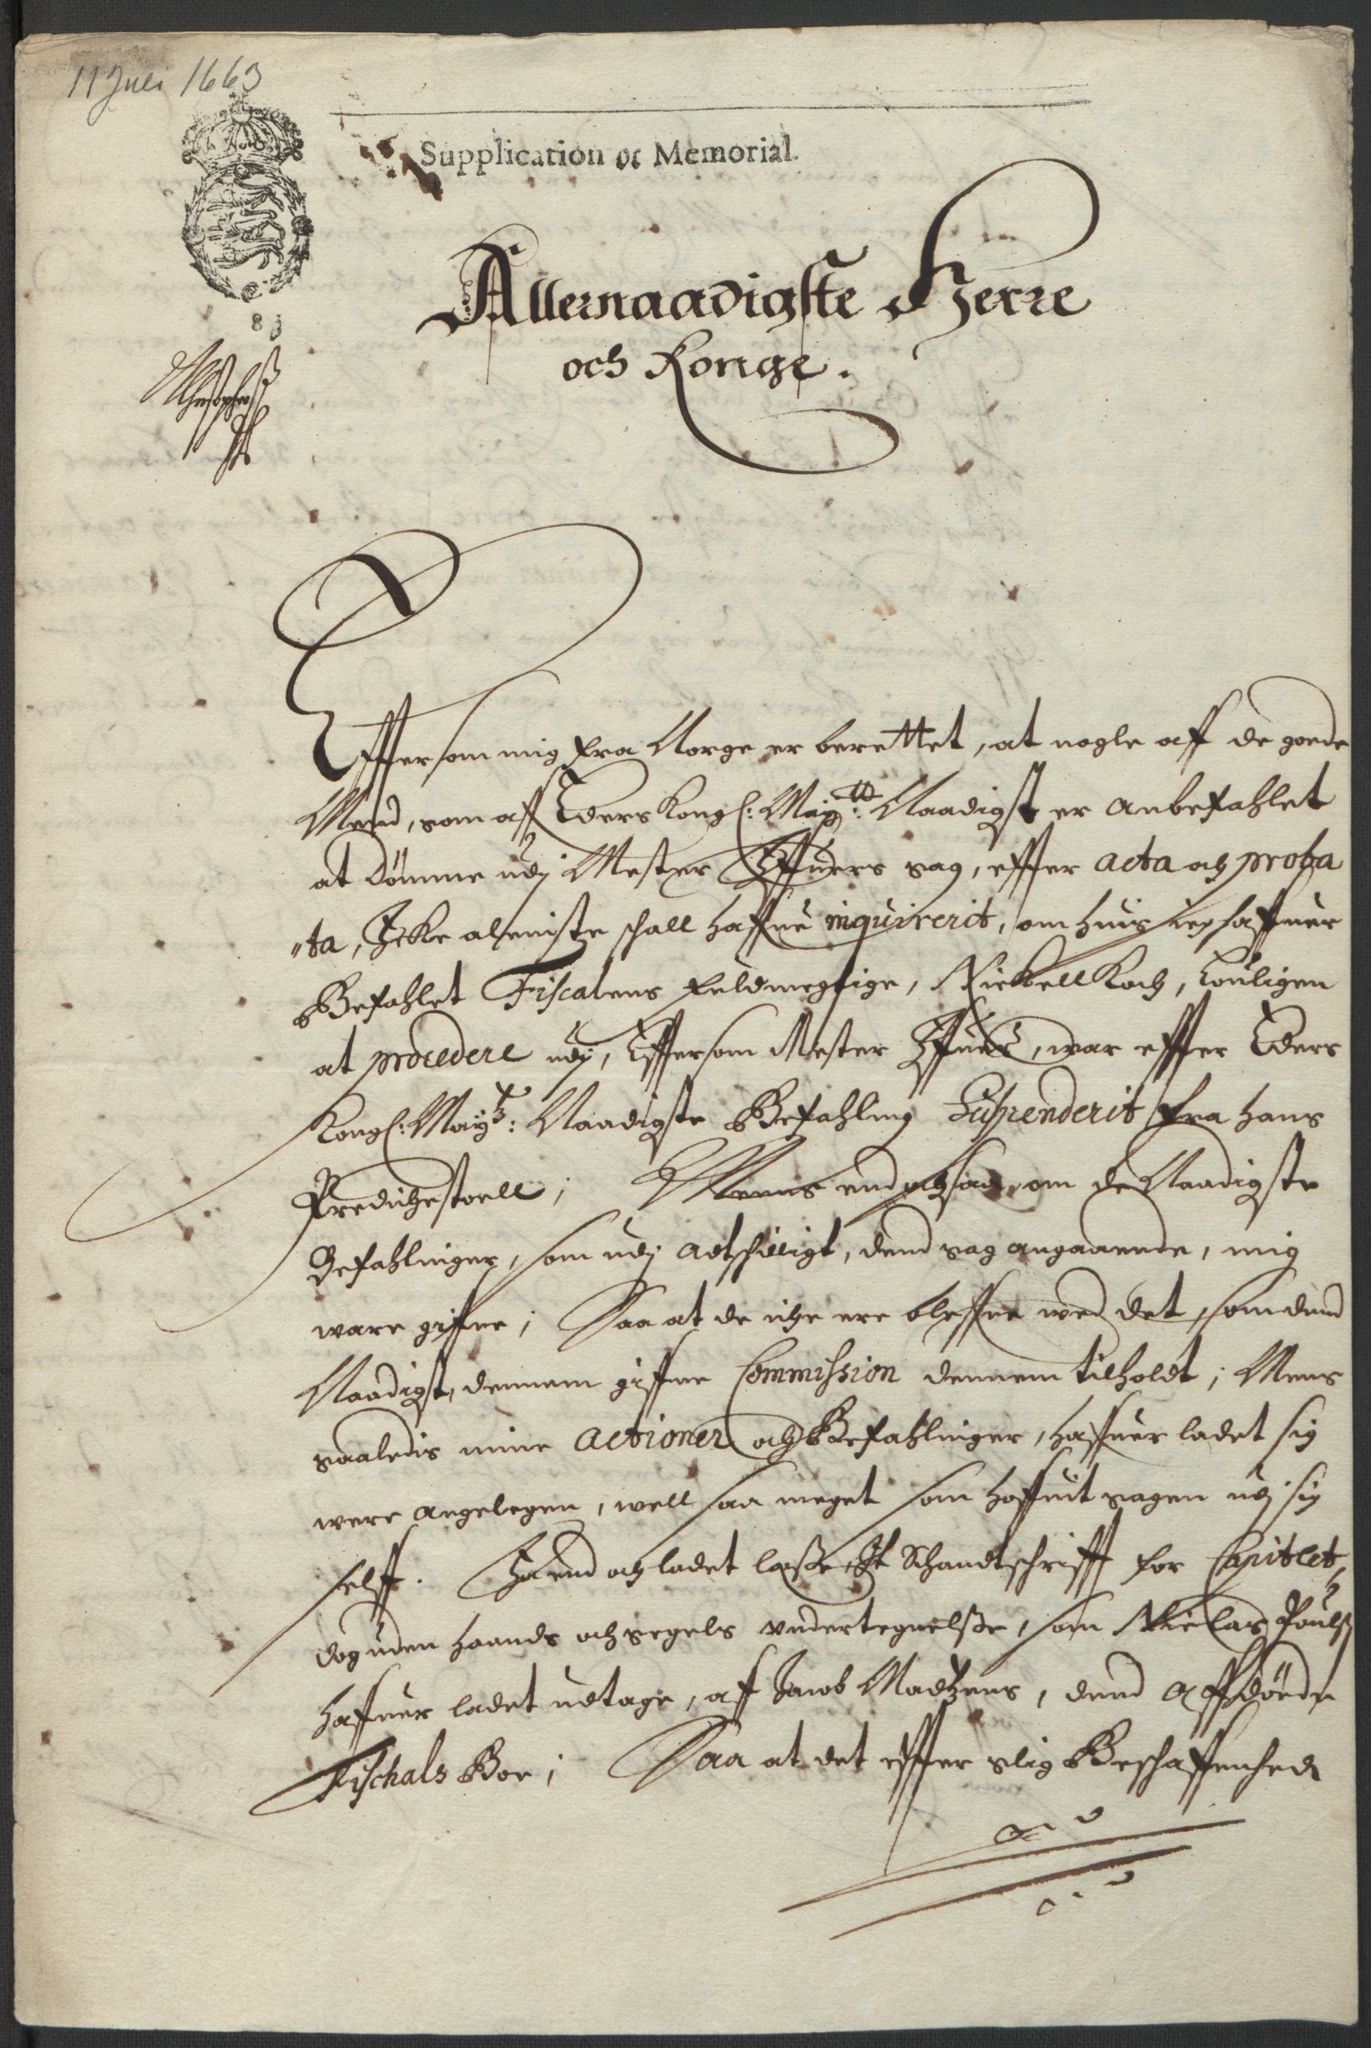 11 Juli 1663
Supplication oc Memorial.
Allernaadigste Herre
och Konge.
Effter som mig fra Norge er berettet, at nogle aff de goede
Mend, som aff Eders Kongl: May:tt: Naadigst er anbefahlet
at dømme udj Mester Iffuers sag, effter acta och proba
"ta, Icke aleniste schall haffue inquirerit, om huis ieg haffuer
Befahlet Fiscalens fuldmegtige, Nickell Koch, Louligen
at procedere udj, Effter som Mester Iffuer, war effter Eders
Kongl: May:tz: Naadigste Befahling Suspenderit fra hans
Predichestoell; Mens end ochsaa, om de Naadigste
Befahlinger, som udj adtschilligt, dend sag angaaende, mig
ware giffne; Saa at de iche ere bleffne wed det, som dend
Naadigst, dennem giffne Commission dennem tilholdt; Mens
saaledis mine actioner och Befahlinger, haffuer ladet sig
were angelegen, well saa meget som hoffuit sagen udj sig
selff. Ja end och ladet læsse Et Schandtschrifft for Capitlet,
dog uden haands och segels vndertegnelsse, som Nielas Poulsz
haffuer ladet udtage, af Jacob Madtzens, dend Affdøede
Fischals Boe; Saa at det effter slig Beschaffenhed